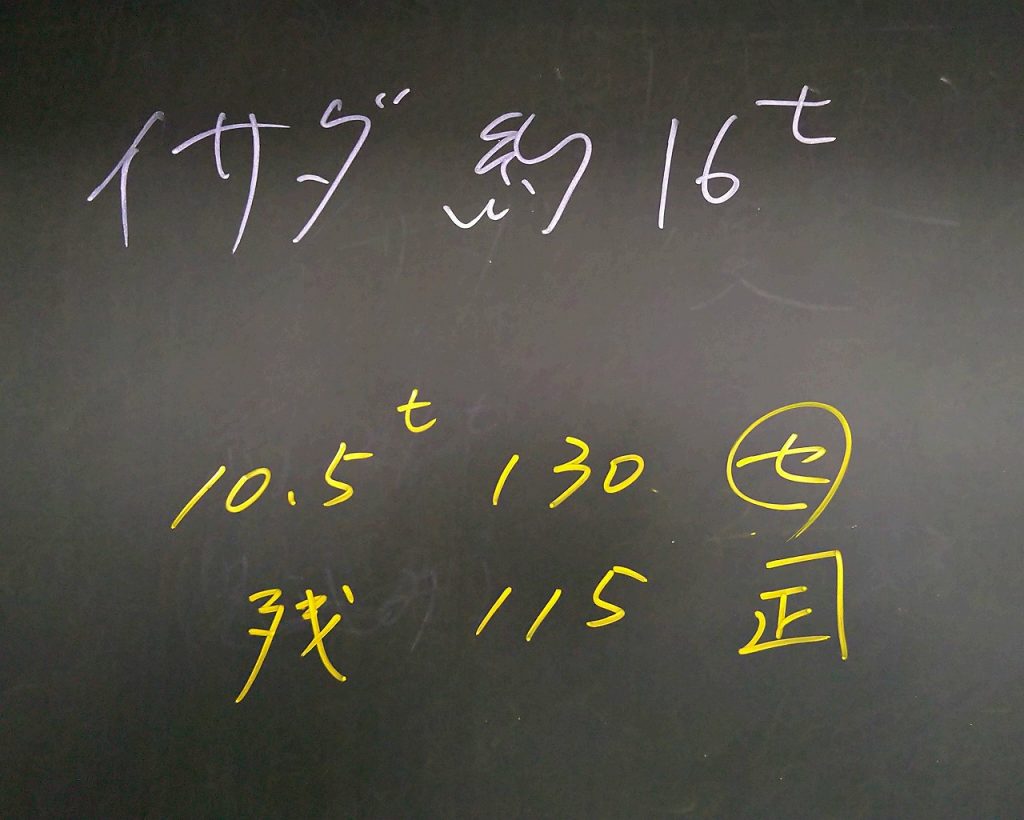 イサダ 約16t
10.5t 130 セ
残 115 正